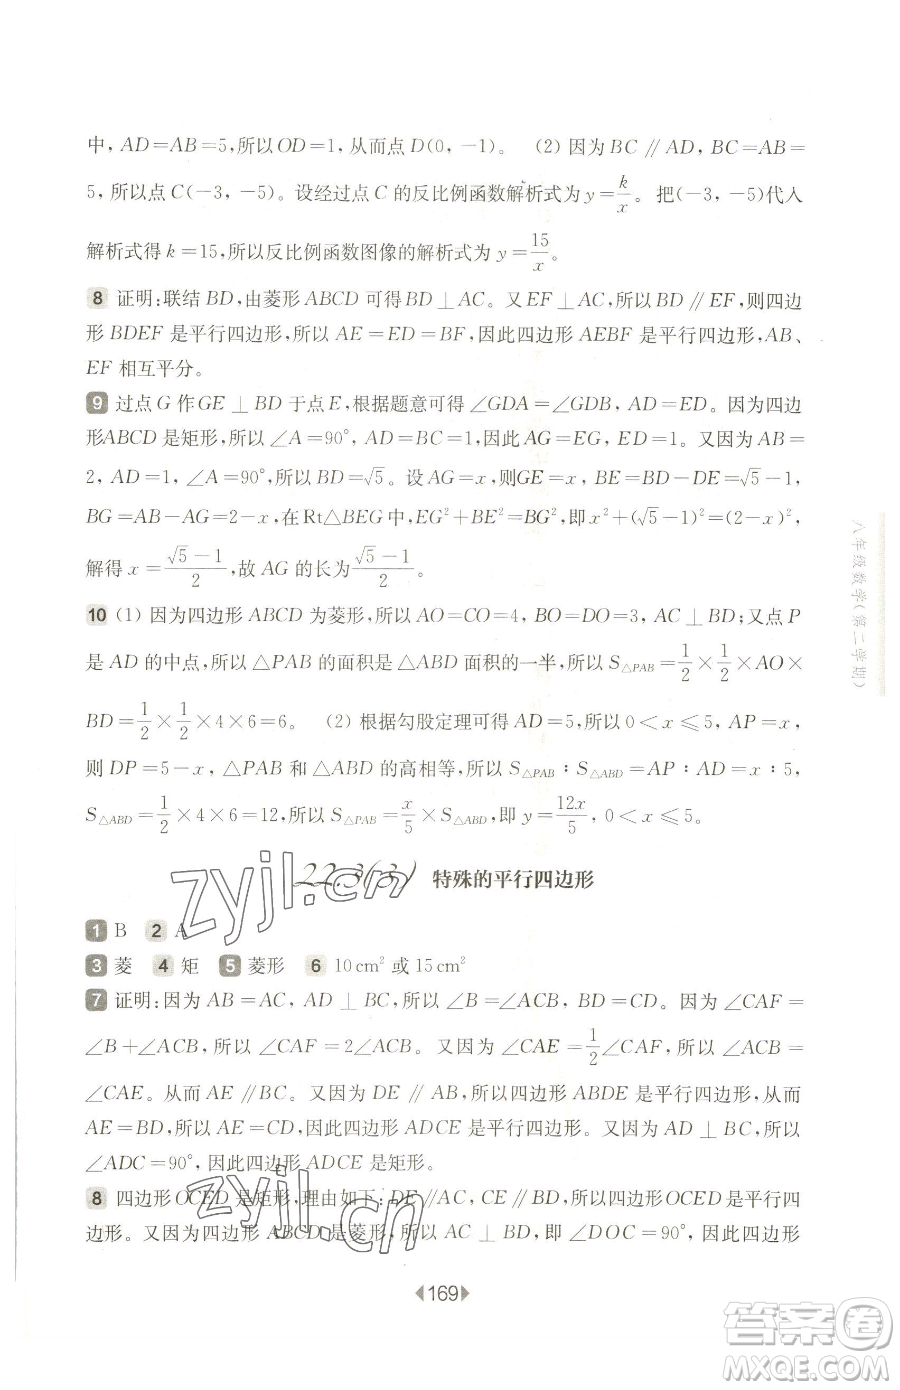 中，AD＝AB＝5，所以OD＝1，从而点D(0，－1)。 (2) 因为BC∥AD，BC＝AB＝
5，所以点C(－3，－5)。设经过点C的反比例函数解析式为y＝k/x。把(－3，－5)代人
解析式得k＝15，所以反比例函数图像的解析式为y＝15/x。
8 证明：联结BD，由菱形ABCD可得BD⊥AC。又EF⊥AC，所以BD∥EF，则四边
形BDEF是平行四边形，所以AE＝ED＝BF，因此四边形AEBF是平行四边形，AB、
EF相互平分。
9 过点G作GE⊥BD于点E，根据题意可得∠GDA＝∠GDB，AD＝ED。因为四边
形ABCD是矩形，所以∠A＝90°，AD＝BC＝1，因此AG＝EG，ED＝1。又因为AB＝
2，AD＝1，∠A＝90°，所以BD＝√5。设AG＝x，则GE＝x，BE＝BD－DE＝√5－1，
BG＝AB－AG＝2－x，在Rt△BEG中，EG²＋BE²＝BG²，即x²＋(√5－1)²＝(2－x)²，
解得x＝(√5－1)/2，故AG的长为(√5－1)/2。
10 (1) 因为四边形ABCD为菱形，所以AO＝CO＝4，BO＝DO＝3，AC⊥BD；又点P
是AD的中点，所以△PAB的面积是△ABD面积的一半，所以S△PAB＝1/2×1/2×AO×
BD＝1/2×1/2×4×6＝6。 (2) 根据勾股定理可得AD＝5，所以0＜x≤5，AP＝x，
则DP＝5－x，△PAB和△ABD的高相等，所以S△PAB∶S△ABD＝AP∶AD＝x∶5，
S△ABD＝1/2×4×6＝12，所以S△PAB＝x/5×S△ABD，即y＝12x/5，0＜x≤5。
22.3(3) 特殊的平行四边形
1 B 2 A
3 菱 4 矩 5 菱形 6 10 cm²或15 cm²
7 证明：因为AB＝AC，AD⊥BC，所以∠B＝∠ACB，BD＝CD。因为∠CAF＝
∠B＋∠ACB，所以∠CAF＝2∠ACB。又因为∠CAE＝1/2∠CAF，所以∠ACB＝
∠CAE。从而AE∥BC。又因为DE∥AB，所以四边形ABDE是平行四边形，所以
AE＝BD，所以AE＝CD，因此四边形ADCE是平行四边形。又因为AD⊥BC，所以
∠ADC＝90°，因此四边形ADCE是矩形。
8 四边形OCED是矩形，理由如下：DE∥AC，CE∥BD，所以四边形OCED是平行四
边形。又因为四边形ABCD是菱形，所以AC⊥BD，即∠DOC＝90°，因此四边形
169
八年级数学(第二学期)
zyjl.cn
zyjl.cn
答案圈
MXQE.COM